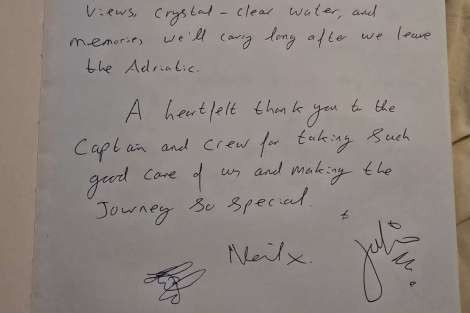 views, crystal-clear water, and
memories we'll carry long after we leave
the Adriatic.
A heartfelt thank you to the
Captain and crew for taking such
good care of us and making the
Journey so special.
Neil x.